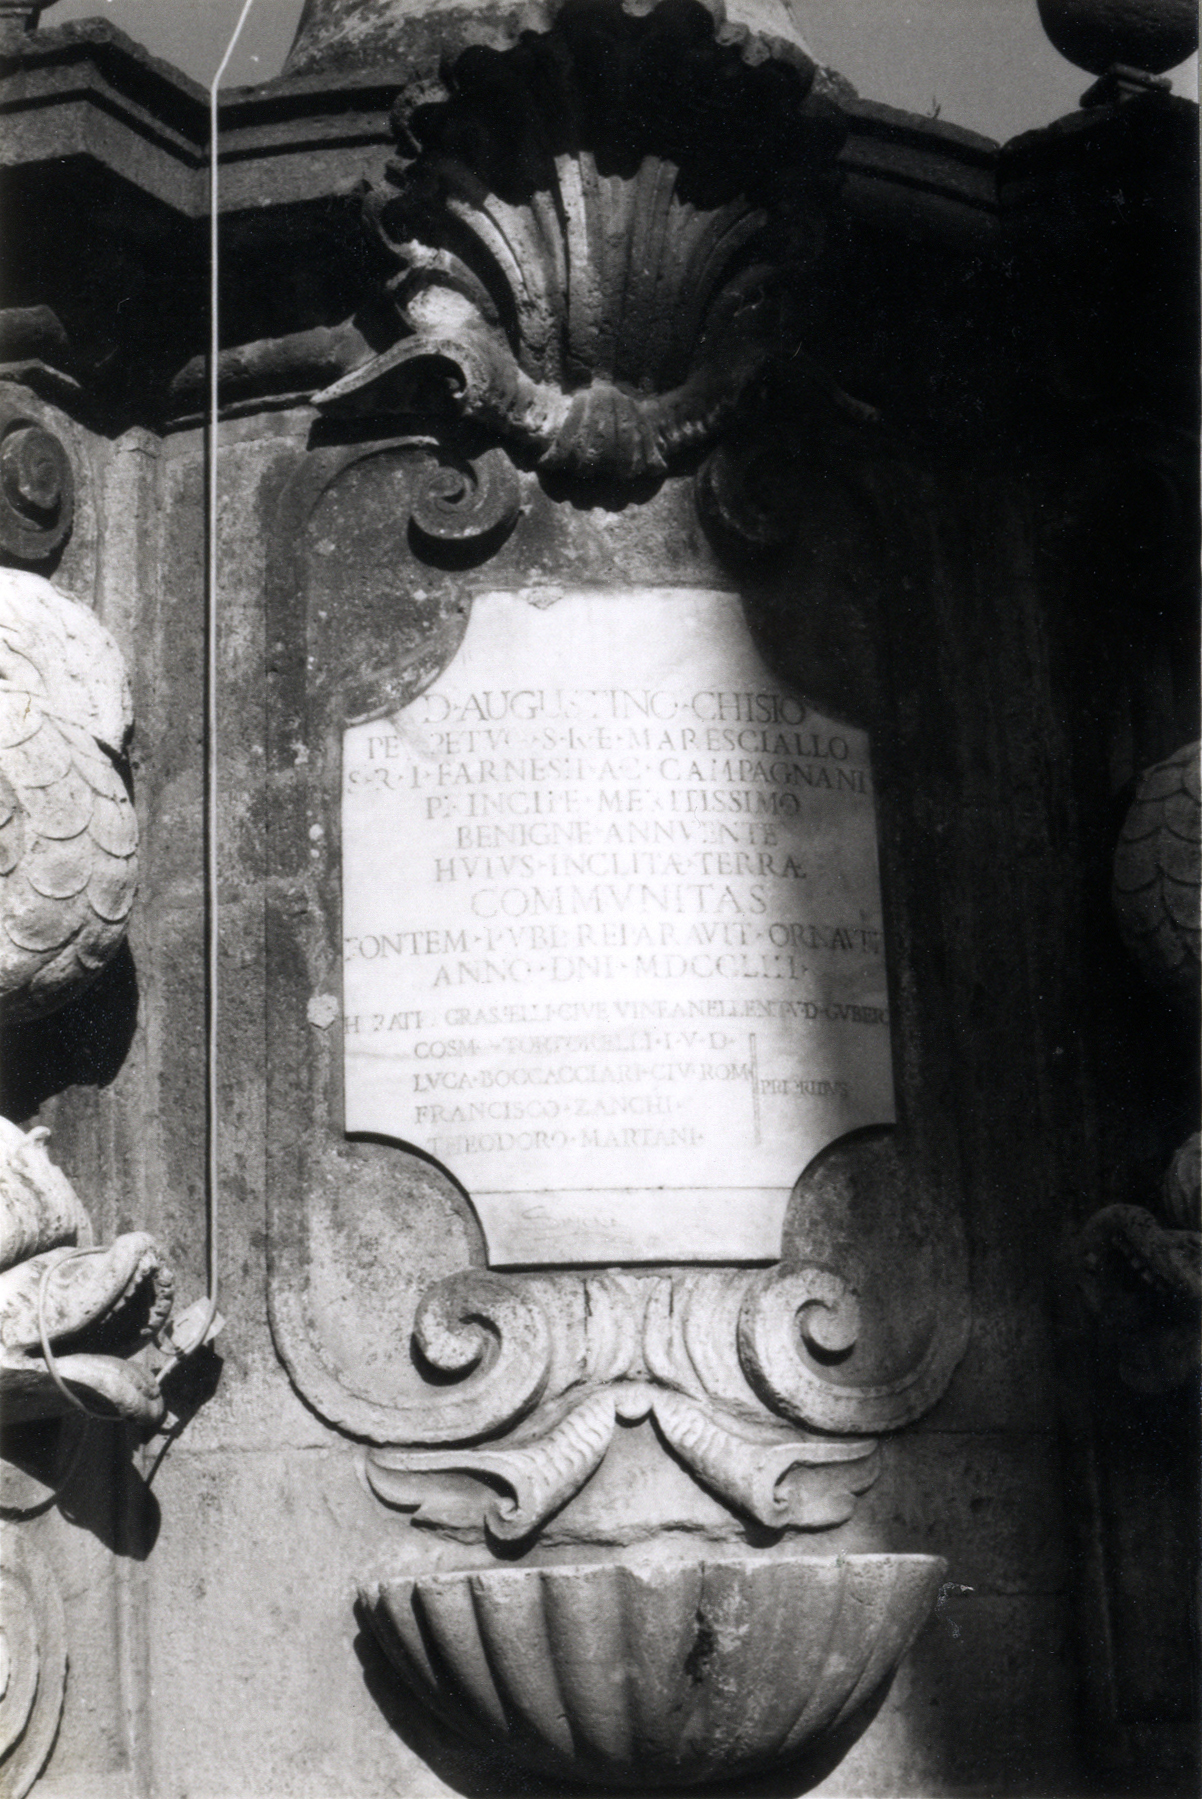 D·AUGUSTINO·CHISIO
PERPETVO·S·R·E·MARESCIALLO
S·R·I·FARNESII·AC·CAMPAGNANI
PRINCIPE·MERITISSIMO
BENIGNE·ANNVENTE
HVIVS·INCLITÆ·TERRÆ
COMMVNITAS
FONTEM·PVBL·REPARAVIT·ORNAVIT
ANNO·DNI·
GRASSELLI·CIVE·VINEANELLEN·GVBER
COSMO·TORTORELLI·I·V·D·
LVCA·BOCCACCIARI·CIV·ROM·
FRANCISCO·ZANCHI·
THEODORO·MARIANI·